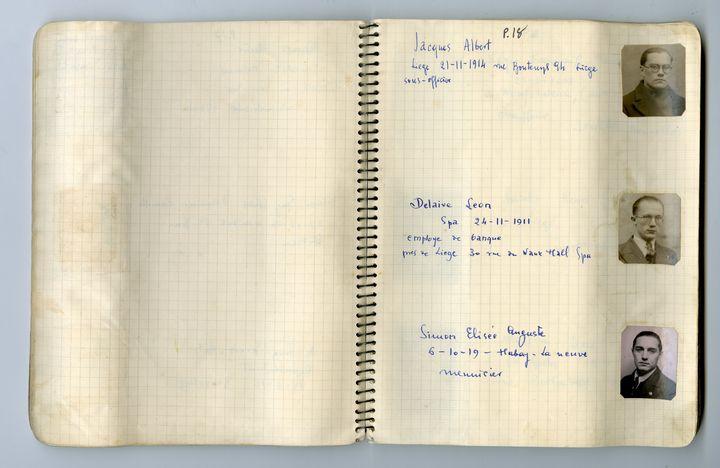 P.18
Jacques Albert
Liege 21-11-1914 rue 94 Liège
sous-officier
Delaive Leon
Spa 24-11-1911
employe de banque
pres de Liege 30 rue du Vaux Hall Spa
Simon Elisée Auguste
6-10-19 - Habay-La neuve
menuisier